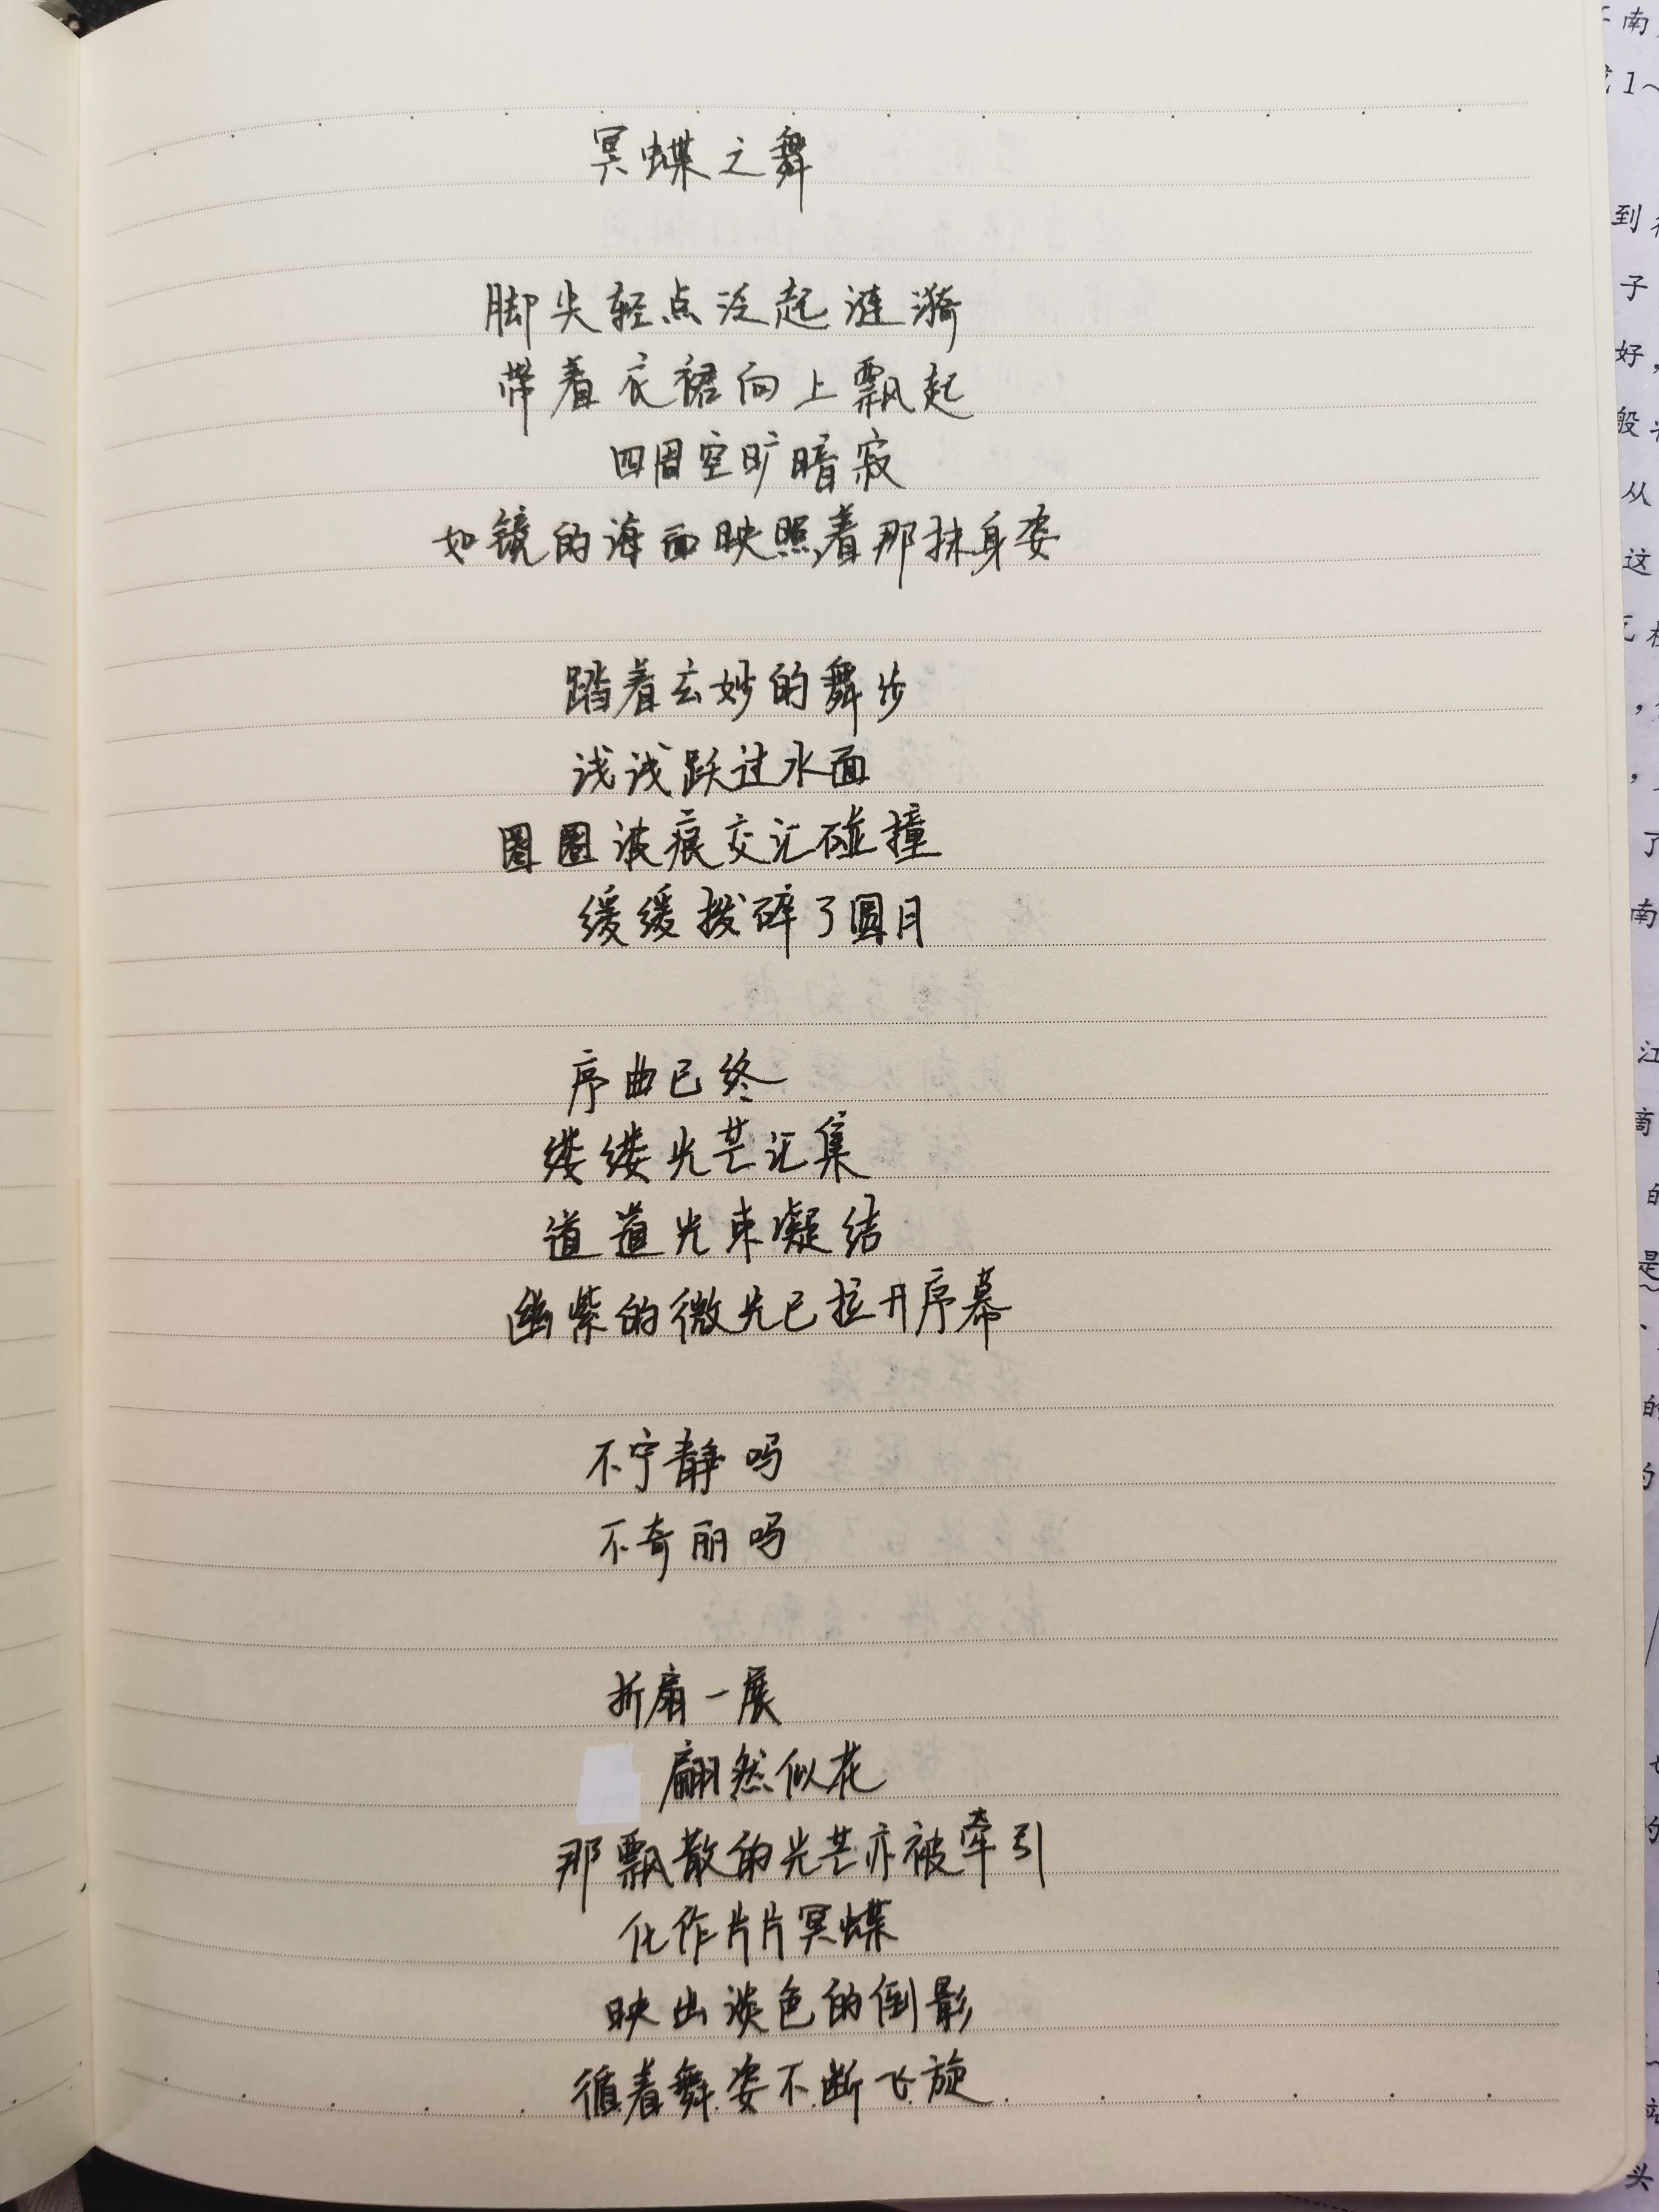 冥蝶之舞
脚尖轻点泛起涟漪
带着衣裙向上飘起
四周空旷暗寂
如镜的海面映照着那抹身姿
踏着玄妙的舞步
浅浅跃过水面
圈圈波痕交汇碰撞
缓缓拨碎了圆月
序曲已终
缕缕光芒汇集
道道光束凝结
幽紫的微光已拉开序幕
不宁静吗
不奇丽吗
折扇一展
翩然似花
那飘散的光芒亦被牵引
化作片片冥蝶
映出淡色的倒影
循着舞姿不断飞旋